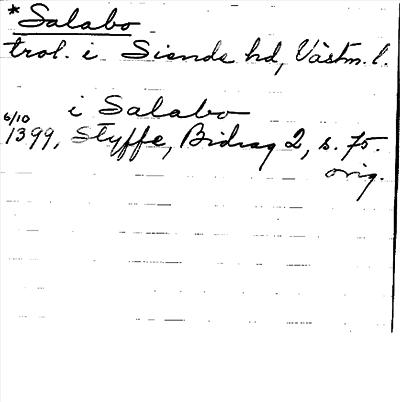 *Salabo
trol. i Siende hd, Västm. l.
i Salabo
6/10
1399, Styffe, Bidrag 2, s. 75.
orig.